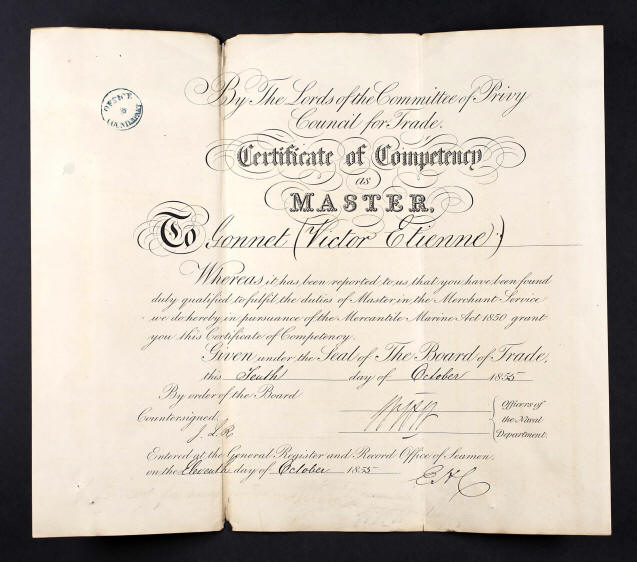 OFFICE
COUNTERPART
By The Lords of the Committee of Privy
Council for Trade.
Certificate of Competency
as
MASTER,
To Gonnet (Victor Etienne)
Whereas it has been reported to us that you have been found
duly qualified to fulfil the duties of Master in the Merchant Service
we do hereby in pursuance of the Mercantile Marine Act 1850 grant
you this Certificate of Competency.
Given under the Seal of The Board of Trade,
this Tenth day of October 1855
By order of the Board
Officers of
the Naval
Department.
Countersigned,
J. L. R.
Entered at the General Register and Record Office of Seamen,
on the Eleventh day of October 1855